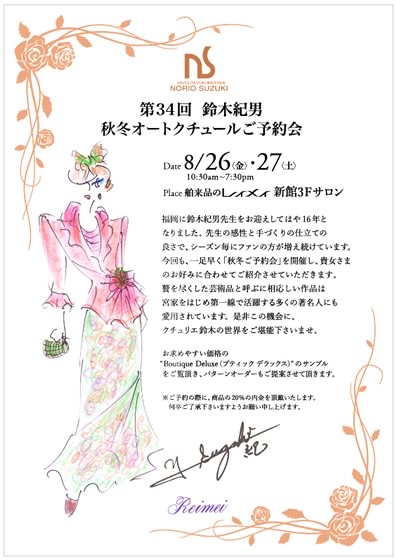 NS
HAUTE COUTURE BOUTIQUE
NORIO SUZUKI
第34回 鈴木紀男
秋冬オートクチュールご予約会
Date 8/26〈金〉・27〈土〉
10:30am~7:30pm
Place 舶来品のレイメイ 新館3Fサロン
福岡に鈴木紀男先生をお迎えしてはや16年と
なりました。先生の感性と手づくりの仕立ての
良さで、シーズン毎にファンの方が増え続けています。
今回も、一足早く「秋冬ご予約会」を開催し、貴女さま
のお好みに合わせてご紹介させていただきます。
贅を尽くした芸術品と呼ぶに相応しい作品は
宮家をはじめ第一線で活躍する多くの著名人にも
愛用されています。是非この機会に、
クチュリエ鈴木の世界をご堪能下さいませ。
お求めやすい価格の
"Boutique Deluxe（ブティック デラックス）"のサンプル
をご覧頂き、パターンオーダーもご提案させて頂きます。
※ご予約の際に、商品の20%の内金を頂戴いたします。
何卒ご了承下さいますようお願い申し上げます。
Reimei